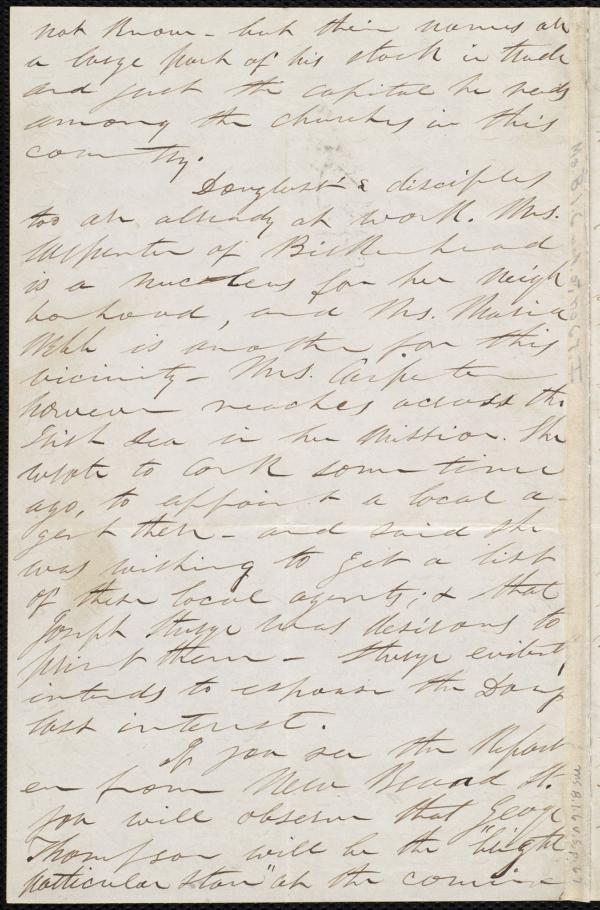 not know - but their names are
a large part of his stock in trade
and just the capital he needs
among the churches in this
country.
Douglass's disciples
too are already at work. Mrs.
Carpenter of Birkenhead
is a nucleus for her neigh
borhood, and Mrs. Maria
Webb is another for this
vicinity - Mrs. Carpenter
however reaches across the
Irish Sea in her mission. She
wrote to Cork some time
ago, to appoint a local a-
gent there - and said she
was wishing to get a list
of these local agents; & that
Joseph Sturge was desirous to
print them - Sturge evidently
intends to espouse the Doug
lass interest.
If you see the Report
er from New Broad St.
you will observe that George
Thompson will be the "bright
particular star" at the coming